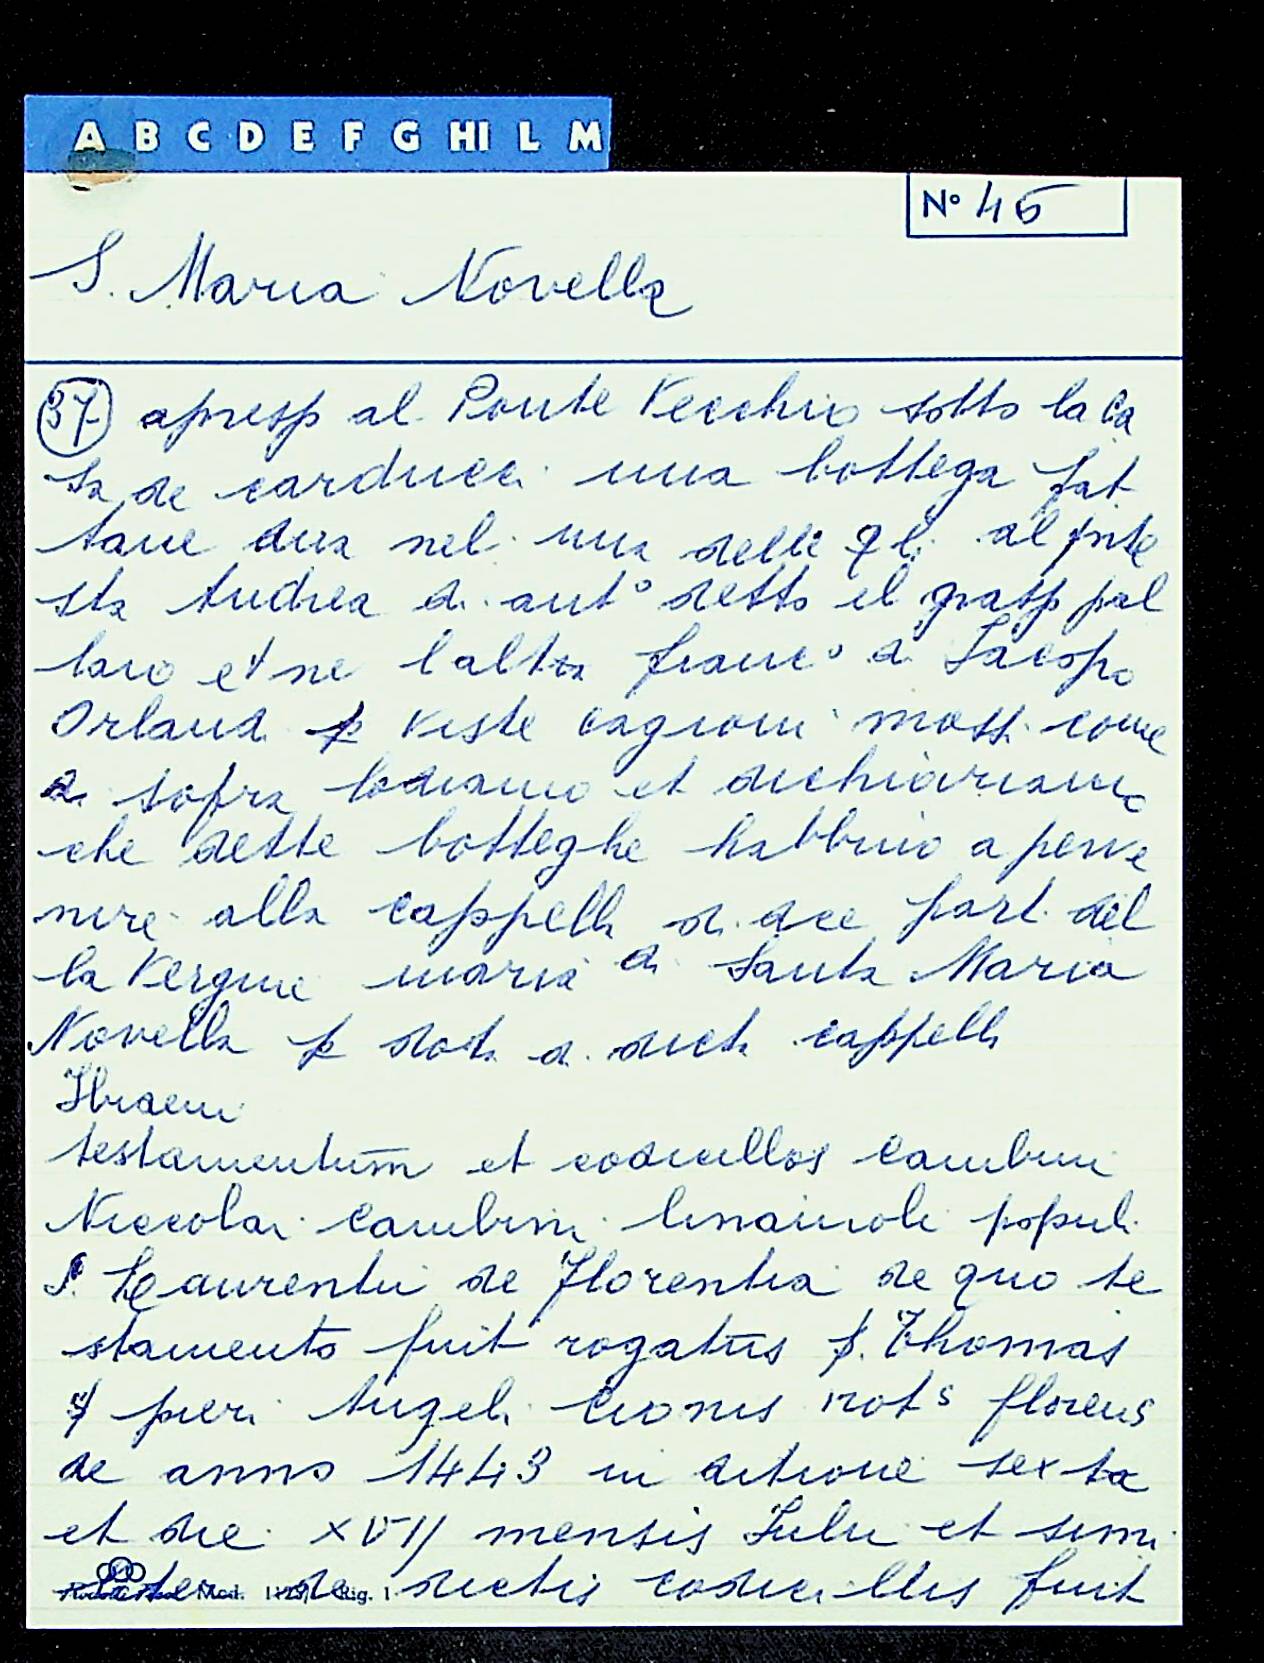 A B C D E F G HI L M
N° 45
S. Maria Novella
37 apresso al Ponte Vecchio sotto la ca
sa de carducci una bottega fat
tane dua nel una delle q li al pnte
sta Andrea di ant° detto el grasso pal
laio et ne l altra franc° di Jacopo
Orlandi p viste cagioni mossi come
di sopra lodiamo et dichiariamo
che dette botteghe habbino a perve
nire alla cappella di dce part. del
la Vergine maria di Santa Maria
Novella p dota di dicta cappella
testamentum et codicillos Cambini
Niccolai Cambini linaiuoli populi
S. Laurentii de Florentia de quo te
stamento fuit rogatus s. Thomas
s pieri Angeli Cionis not s florens
de anno 1443 in ditione sexta
et die XVII mensis Julii et simi
liter de dictis codicillis fuit